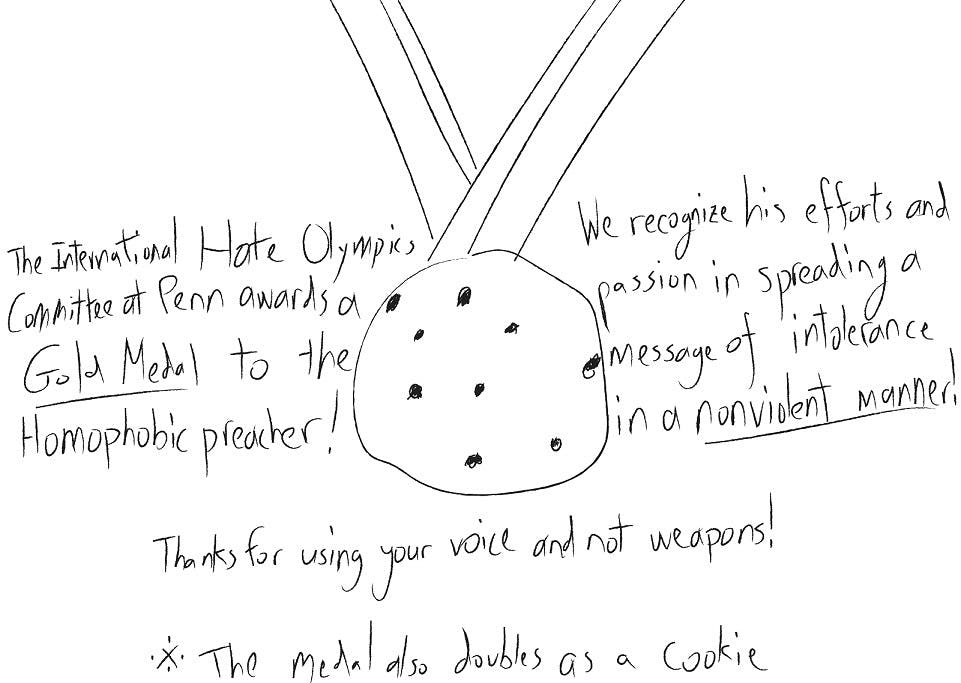 The International Hate Olympics
Committee at Penn awards a
Gold Medal to the
Homophobic preacher!
We recognize his efforts and
passion in spreading a
message of intolerance
in a nonviolent manner!
Thanks for using your voice and not weapons!
※ The medal also doubles as a cookie